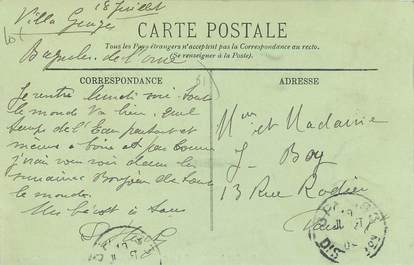 18 Juillet
Villa Georges
CARTE POSTALE
Tous les Pays étrangers n'acceptent pas la Correspondance au recto.
(Se renseigner à la Poste).
Bagnoles de l'Orne
CORRESPONDANCE
ADRESSE
Je rentre lundi soir toute
le monde va bien. Quel
temps de l'Eau partout et
même à boire et pas bonne
j'irai vous voir dans la
semaine Bonjour de tout
le monde.
à tous
et Madame
J. Boy
13 Rue Rodier
Paris